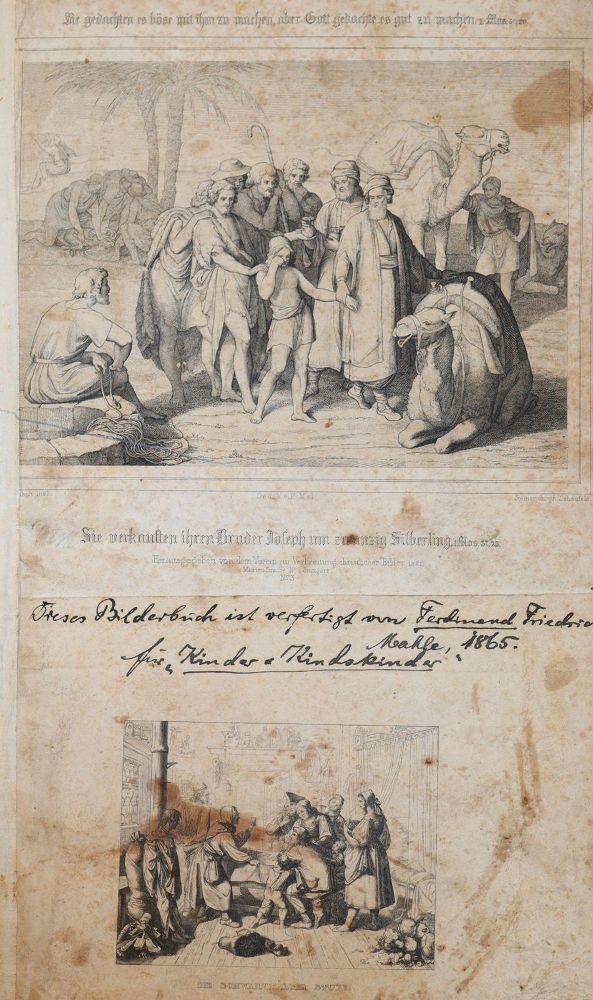 Sie gedachten es böse mit ihm zu machen, aber Gott gedachte es gut zu machen.
Sie verkauften ihren Bruder Joseph um zwanzig Silberling.
Herausgegeben von dem Verein zur Verbreitung christlicher Bilder
No 3
Dieses Bilderbuch ist verfertigt von Ferdinand Friedric
Mahle, 1865.
für „Kinder & Kindskinder"
DIE SCHWARZWÄLDER STUBE